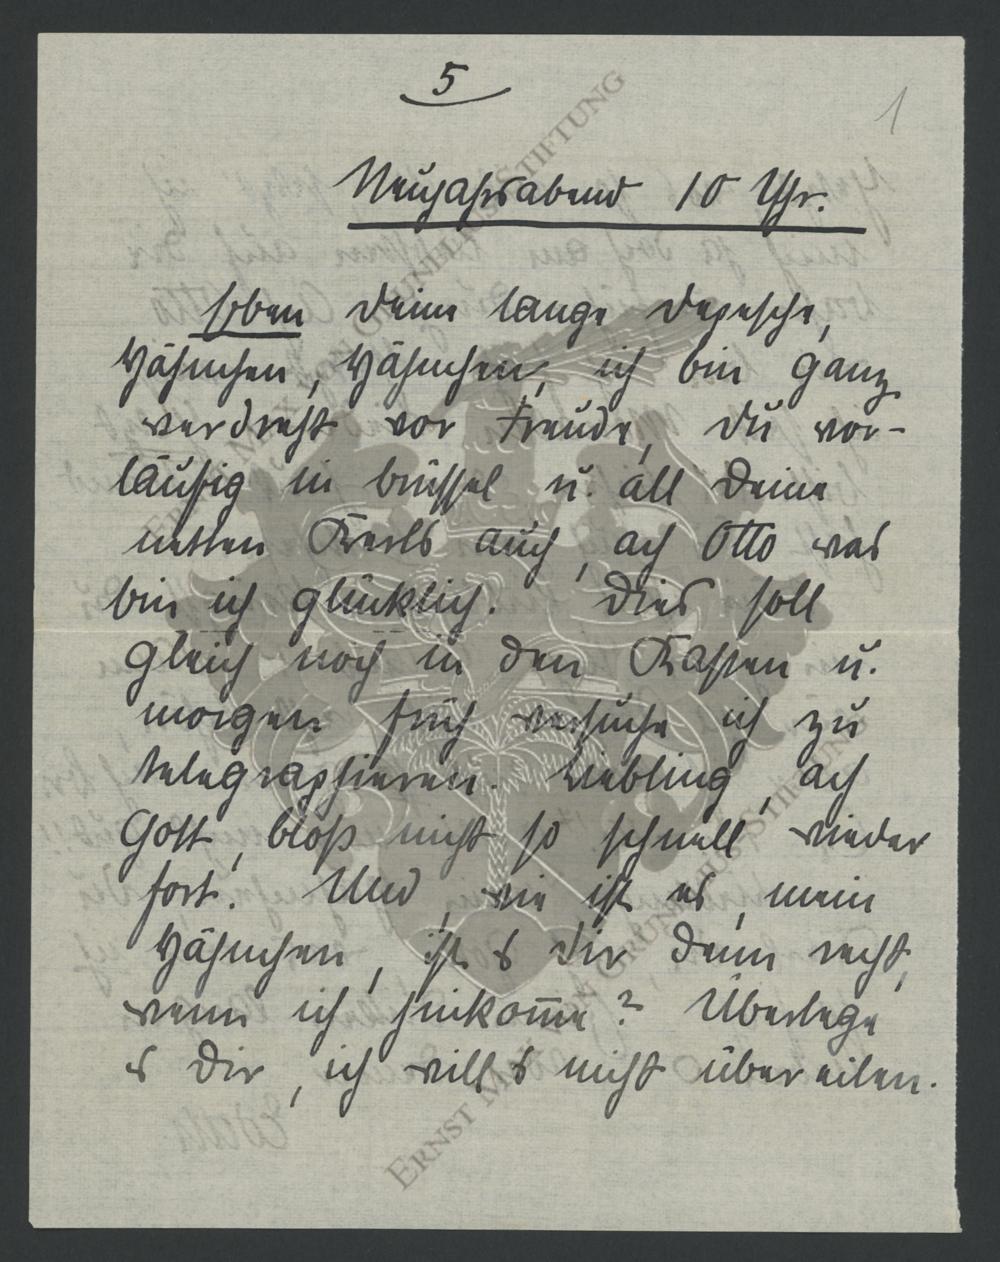 5
1
Neujahrsabend 10 Uhr.
Soben deine lange Depesche,
Hähnchen, Hähnchen, ich bin ganz
verdreht vor Freude, du vor-
läufig in brüssel u. all deine
netten Kerls auch, ach Otto was
bin ich glücklich. Dies soll
gleich noch in den Kasten u.
morgen früh versuche ich zu
telegraphieren. Liebling, ach
Gott, bloß nicht so schnell wieder
fort. Und, wie ist es, mein
Hähnchen, ist's dir denn recht,
wenn ich hinkom̅e? Überlege
's dir, ich will's nicht übereilen.
ERNST MAX VON GRUNELIUS-STIFTUNG
ERNST MAX VON GRUNELIUS-STIFTUNG